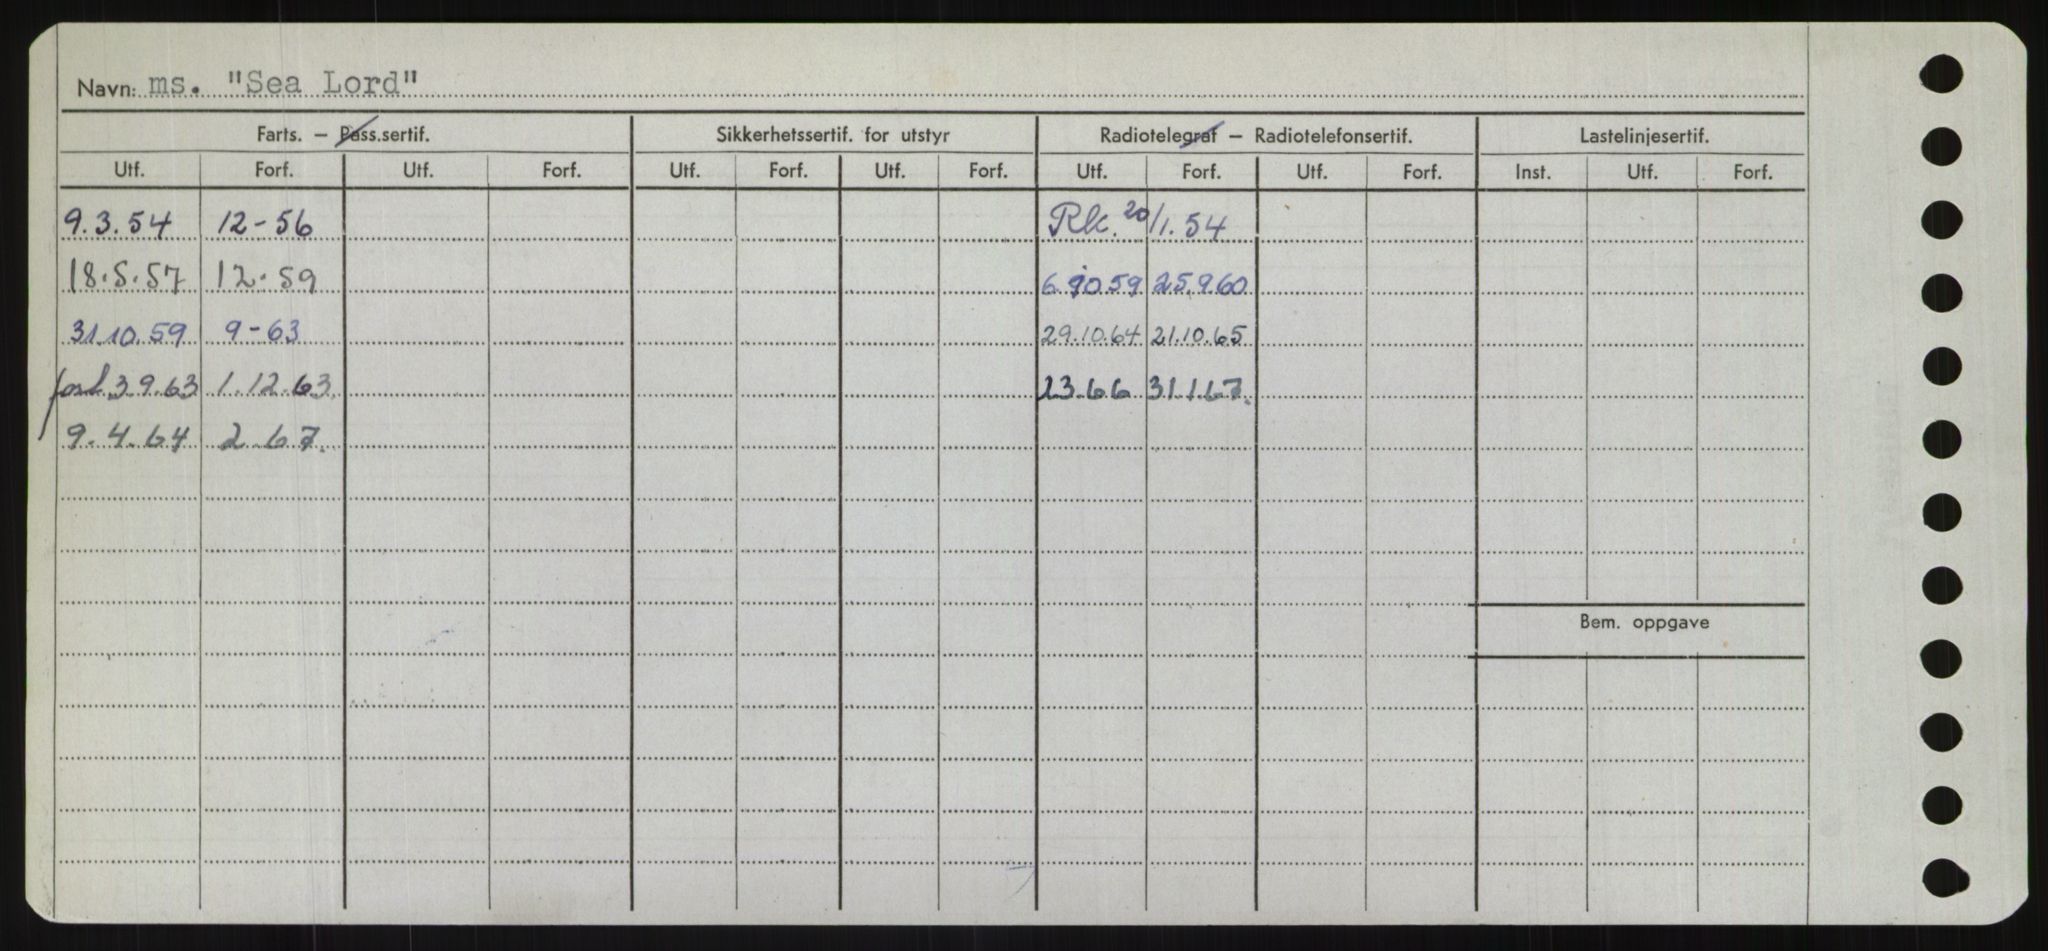 Navn: ms. "Sea Lord"
Farts. – Pass.sertif. Sikkerhetssertif. for utstyr Radiotelegraf – Radiotelefonsertif. Lastelinjesertif.
Utf. Forf. Utf. Forf. Utf. Forf. Utf. Forf. Utf. Forf. Utf. Forf. Inst. Utf. Forf.
9.3.54 12-56 Rk. 20/1.54
18.5.57 12.59 6.10.59 25.9.60
31.10.59 9-63 29.10.64 21.10.65
forl. 3.9.63 1.12.63 2.3.66 31.1.67.
9.4.64 2.67.
Bem. oppgave